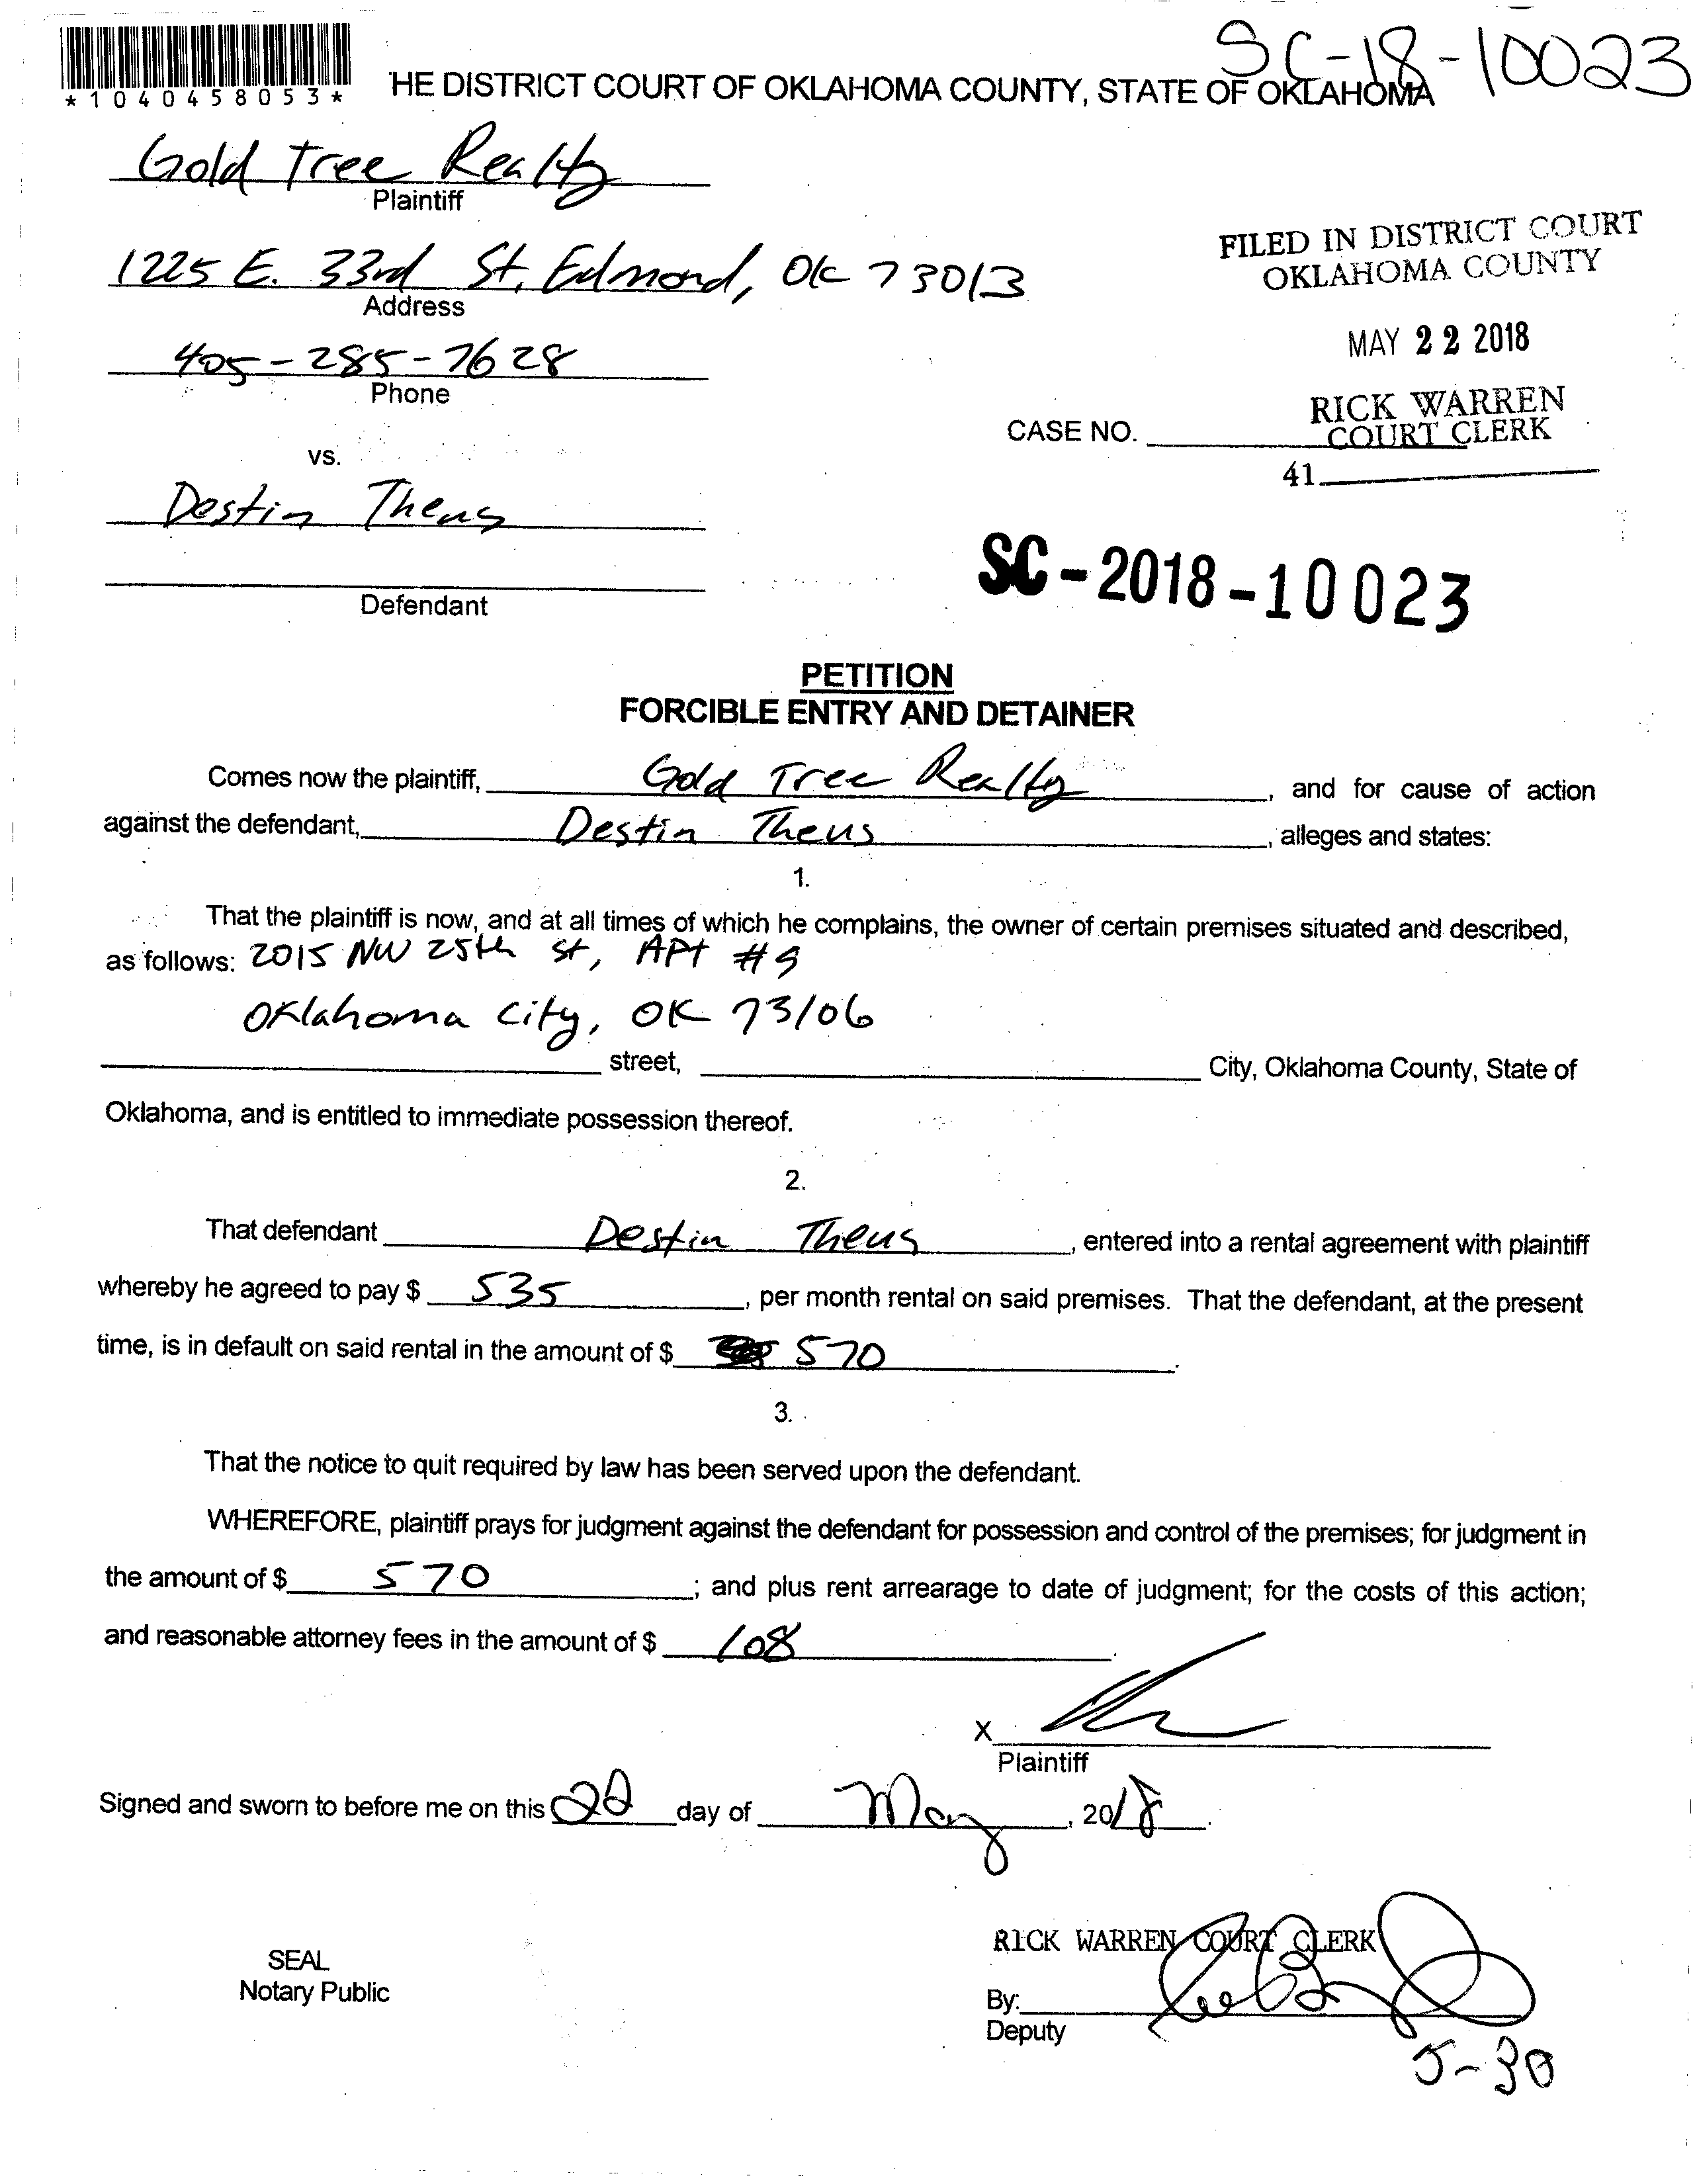 SC-18-10023
*1040458053*
HE DISTRICT COURT OF OKLAHOMA COUNTY, STATE OF OKLAHOMA
Gold Tree Realty
Plaintiff
1225 E. 33rd St, Edmond, OK 73013
Address
405-285-7628
Phone
FILED IN DISTRICT COURT
OKLAHOMA COUNTY
MAY 22 2018
RICK WARREN
COURT CLERK
CASE NO.
41
vs.
Destin Theus
Defendant
SC-2018-10023
PETITION
FORCIBLE ENTRY AND DETAINER
Comes now the plaintiff, Gold Tree Realty, and for cause of action
against the defendant, Destin Theus, alleges and states:
1.
That the plaintiff is now, and at all times of which he complains, the owner of certain premises situated and described,
as follows: 2015 NW 25th St, APt #9
Oklahoma City, OK 73106
street, City, Oklahoma County, State of
Oklahoma, and is entitled to immediate possession thereof.
2.
That defendant Destin Theus, entered into a rental agreement with plaintiff
whereby he agreed to pay $ 535, per month rental on said premises. That the defendant, at the present
time, is in default on said rental in the amount of $ 570.
3.
That the notice to quit required by law has been served upon the defendant.
WHEREFORE, plaintiff prays for judgment against the defendant for possession and control of the premises; for judgment in
the amount of $ 570; and plus rent arrearage to date of judgment; for the costs of this action;
and reasonable attorney fees in the amount of $ 108.
X
Plaintiff
Signed and sworn to before me on this 22 day of May, 2018.
RICK WARREN COURT CLERK
SEAL
Notary Public
By:
Deputy
5-30